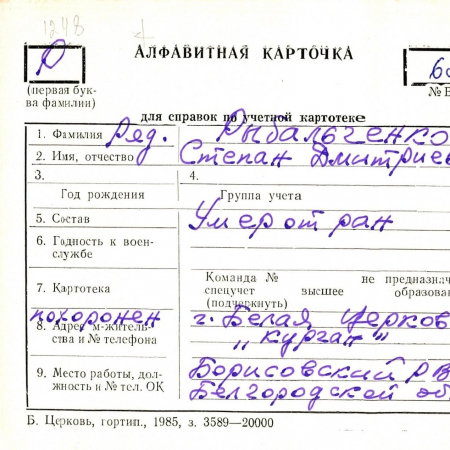 1248
АЛФАВИТНАЯ КАРТОЧКА
Р
(первая бук-
ва фамилии)
для справок по учетной картотеке
1. Фамилия Ряд. Рыбальченко
2. Имя, отчество Степан Дмитриев
3. 4.
Год рождения Группа учета
5. Состав Умер от ран
6. Годность к воен-
службе
Команда № не предназнач
7. Картотека спецучет высшее образова
(подчеркнуть)
похоронен г. Белая Церков
8. Адрес м-житель-
ства и № телефона „Курган"
9. Место работы, дол-
жность и № тел. ОК
Борисовский РВ
Белгородской об
Б. Церковь, гортип., 1985, з. 3589—20000